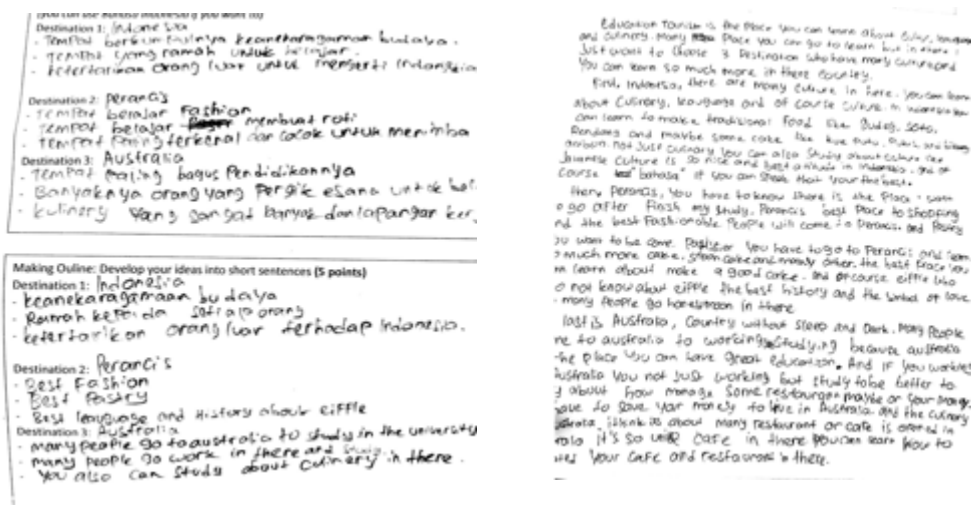 (you can use Bahasa Indonesia if you want to)
Destination 1: Indonesia
- Tempat berkumpulnya keanekaragaman budaya.
- Tempat yang ramah untuk belajar.
- ketertarikan orang luar untuk mengerti Indonesia
Destination 2: Perancis
- Tempat belajar Fashion
- Tempat belajar membuat roti
- Tempat Paling terkenal dan cocok untuk menimba
Destination 3: Australia
- Tempat Paling bagus Pendidikannya
- Banyaknya orang yang Pergi kesana untuk
- kulinery yang sangat banyak dan lapangan ker
Making Ouline: Develop your ideas into short sentences (5 points)
Destination 1: Indonesia
- keanekaragamaan budaya
- Ramah kepada setiap orang
- ketertarikan orang luar terhadap Indonesia.
Destination 2: Perancis
- Best Fashion
- Best Pastry
- Best leauguage and History about eiffle
Destination 3: Australia
- many people go to australia to study in the university
- many people go work in there and
- You also can study about culinery in there.
Education Tourism is the Place you can learn about
and culinery. Many Place you can go to learn but in
Just want to Choose 3 Destination who have many culture and
You can learn so much more in there country.
First, Indonesia, there are many Culture in here. you can learn
about Culinery, leauguage and of course culture. in
can learn to make a traditional Food like Gudeg, Soto,
Rendang and maybe some cake like kue Putu,
not Just culinary you can also Study about culture
Javanese Culture is so nice and best in Indonesia. and of
course "bahasa" if you can speak that your the best.
there Perancis, You have to know there is the Place I
o go after Finish my study. Perancis best Place to shopping
nd the best Fashionable People will come to Perancis. and Pastry
ou want to be come you have to go to Perancis and learn
o much more cake, and many other. the best Place you
n learn about make a good cake. and of course eiffle who
o not know about eiffle the best history and the simbol of love.
many people go honeymoon in there
last is Australia, Country without sleep and Dark. Many People
me to australia to working Studying because australia
the place you can have great education. And IF you working
Australia You not just working but study to be better to
y about how manage some restaurant maybe or your money.
have to save your money to live in Australia. and the culinary
about many restaurant or cafe is opened in
it's so cafe in there You can learn how to
Your cafe and restaurant in there.